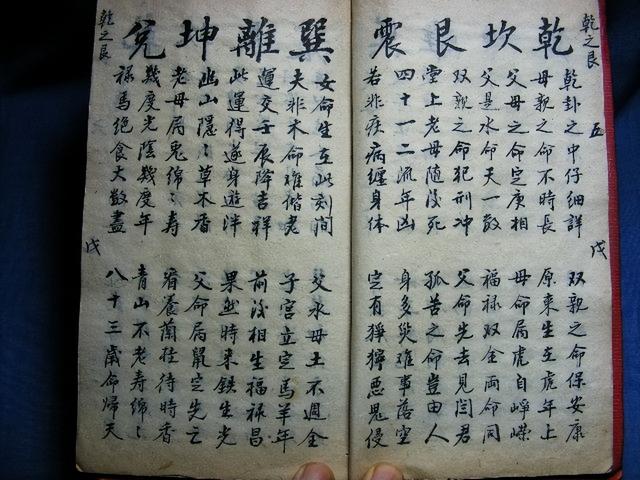 乾之艮
五
戌
乾 坎 艮 震
乾卦之中仔細詳 双親之命保安康
母親之命不時長 原來生在虎年上
父母之命定庚相 母命屬虎自崢嶸
父是水命天一數 福禄双全両命同
双親之命犯刑冲 父命先去見閻君
堂上老母随後死 孤苦之命豈由人
四十一二流年凶 身多災难事落空
若非疾病纏身体 定有猙獰恶鬼侵
巽 離 坤 兌
女命生在此刻间 父水母土不週全
夫非木命难偕老 子宮立定馬羊年
運交壬辰降吉祥 前後相生福禄昌
此運得遂身遊泮 果然時来鉄生光
幽山隱〻草木香 父命屬鼠定先亡
老母屬兎綿〻寿 看養蘭桂待時香
幾度光陰幾度年 青山不老寿綿〻
禄馬絕食大数盡 八十三歲命歸天
乾之艮
戌